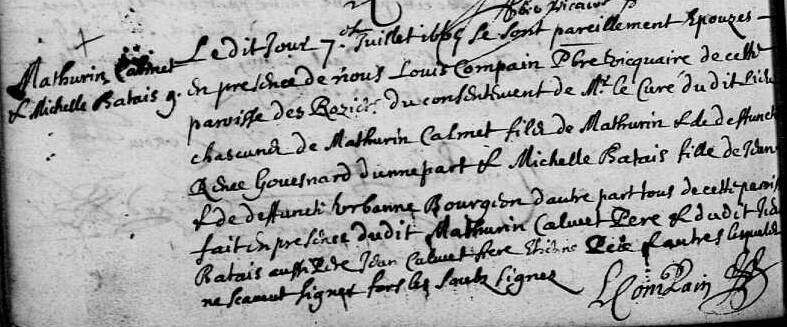 Mathurin Calmet
& Michelle Batais 9.
Le dit Jour 7e Juillet 1669 se sont pareillement Epouzes
en presence de nous Louis Compain Pbre vicquaire de cette
paroisse des Roziers du consentement de Mr le Curé du dit lieu
chascuns de Mathurin Calmet fils de Mathurin & de deffuncte
Renee Gouesnard d'unne part & Michelle Batais fille de Jean
& de deffuncte Urbanne Bourgeon d'autre part tous de cette paroisse
fait en presence dudit Mathurin Calmet Pere & dudit Jean
Batais aussi Pere Jean Calmet frere Etienne & autres lesquels
ne scavent signer fors les soubz signez
L Compain